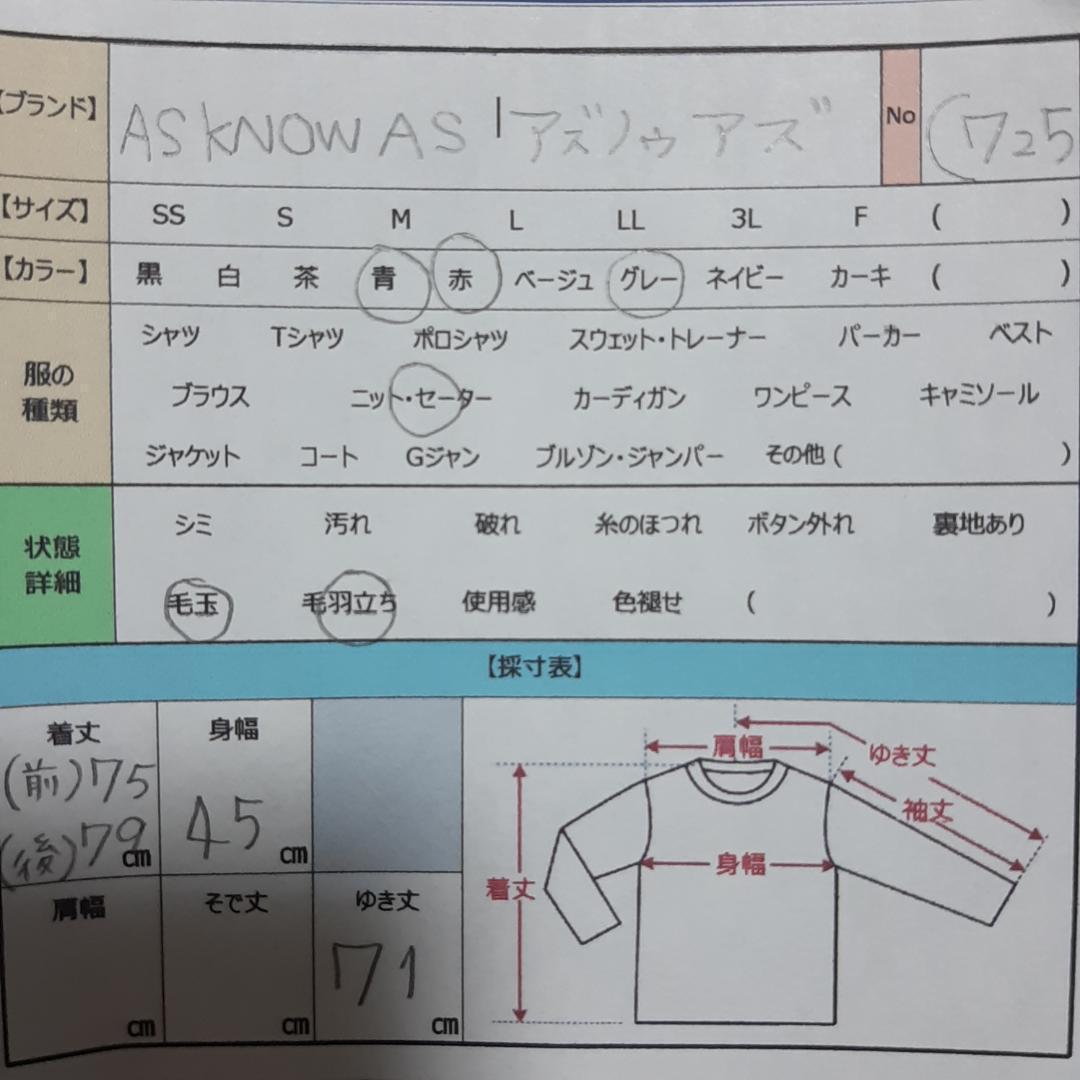 【ブランド】 AS KNOW AS | アズノゥアズ No (725
【サイズ】 SS S M L LL 3L F ( )
【カラー】 黒 白 茶 青 赤 ベージュ グレー ネイビー カーキ ( )
服の種類 シャツ Tシャツ ポロシャツ スウェット・トレーナー パーカー ベスト
ブラウス ニット・セーター カーディガン ワンピース キャミソール
ジャケット コート Gジャン ブルゾン・ジャンパー その他 ( )
状態詳細 シミ 汚れ 破れ 糸のほつれ ボタン外れ 裏地あり
毛玉 毛羽立ち 使用感 色褪せ ( )
【採寸表】
着丈 身幅
(前)75
(後)79cm 45cm
肩幅 そで丈 ゆき丈
cm cm 71cm
肩幅 ゆき丈
袖丈
身幅
着丈